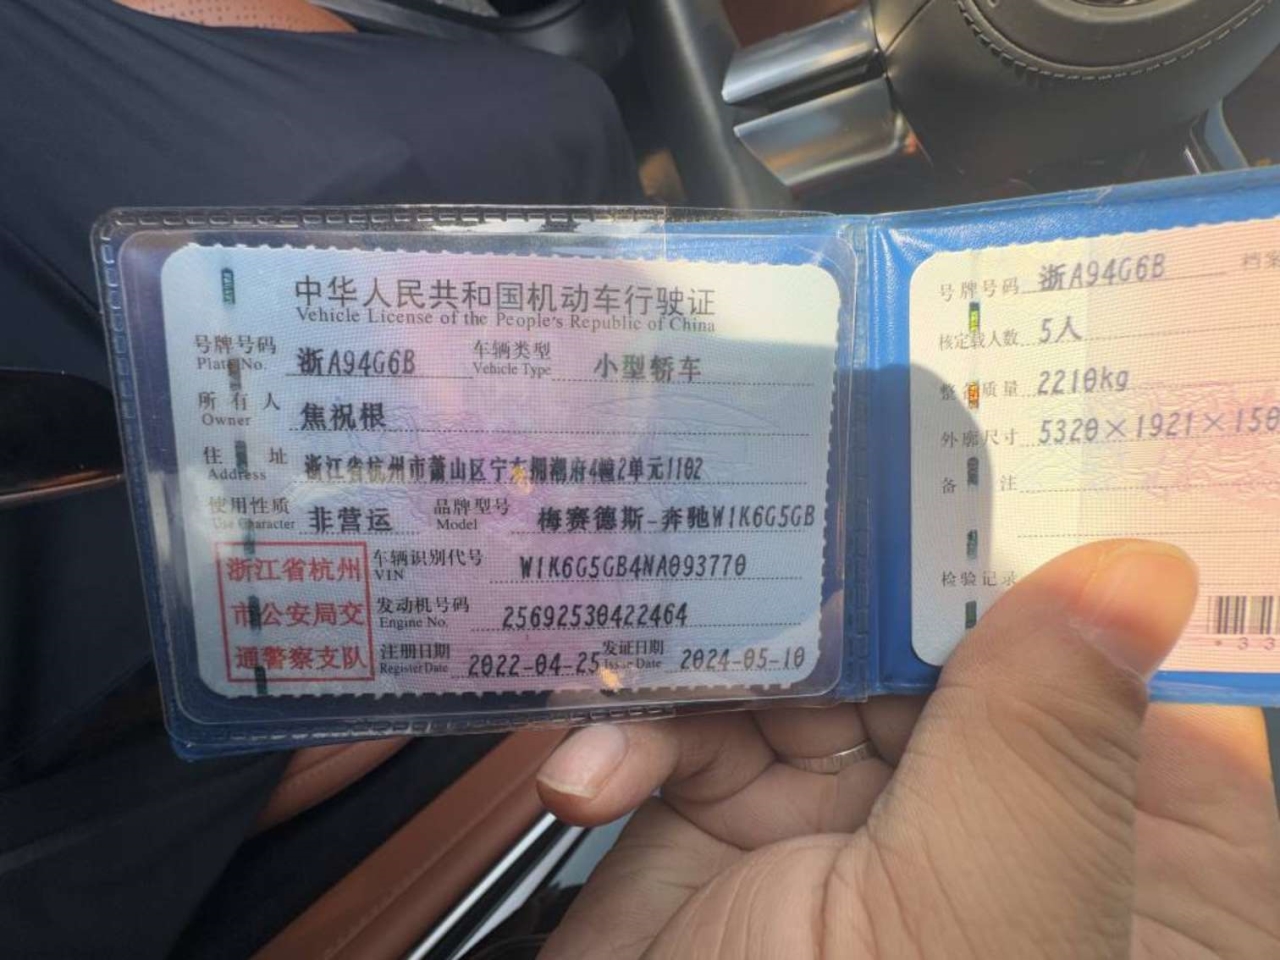 中华人民共和国机动车行驶证
Vehicle License of the People's Republic of China
号牌号码 浙A94G6B 车辆类型 小型轿车
Plate No. Vehicle Type
所有人 焦祝根
Owner
住址 浙江省杭州市萧山区宁东拥潮府4幢2单元1102
Address
使用性质 非营运 品牌型号 梅赛德斯-奔驰W1K6G5GB
Use Character Model
浙江省杭州
市公安局交
通警察支队
车辆识别代号 W1K6G5GB4NA093770
VIN
发动机号码 25692530422464
Engine No.
注册日期 2022-04-25 发证日期 2024-05-10
Register Date Issue Date
号牌号码 浙A94G6B 档案
核定载人数 5人
整备质量 2210kg
外廓尺寸 5320×1921×150
备注
检验记录
*33